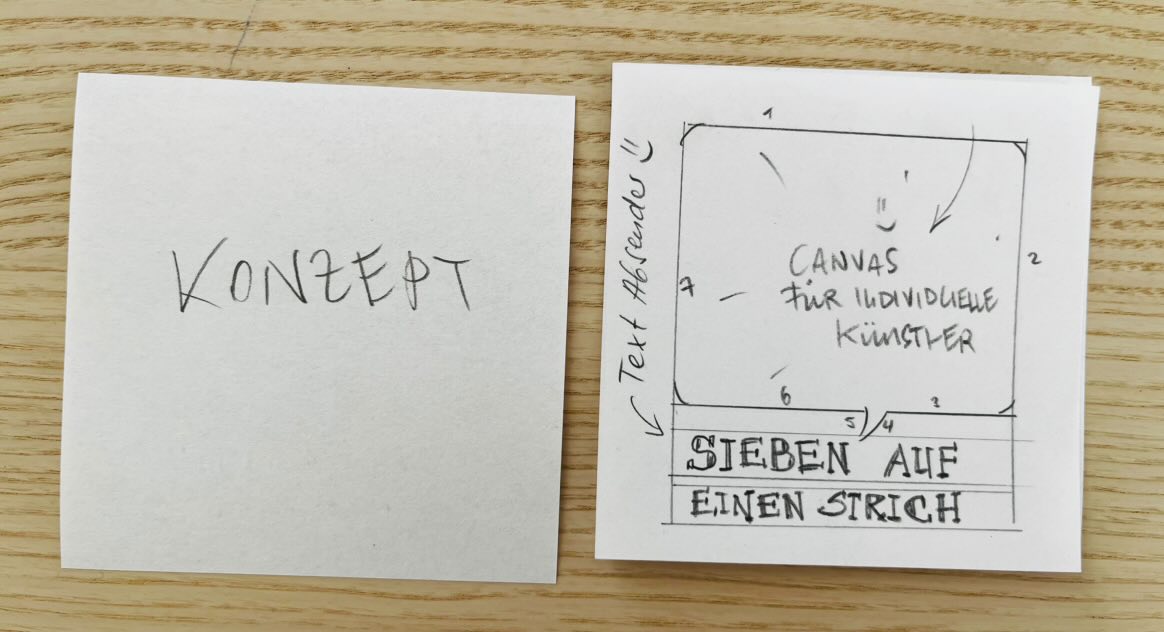 KONZEPT
Text Absender
1
2
7
CANVAS
FÜR INDIVIDUELLE
KÜNSTLER
6
3
5
4
SIEBEN AUF
EINEN STRICH